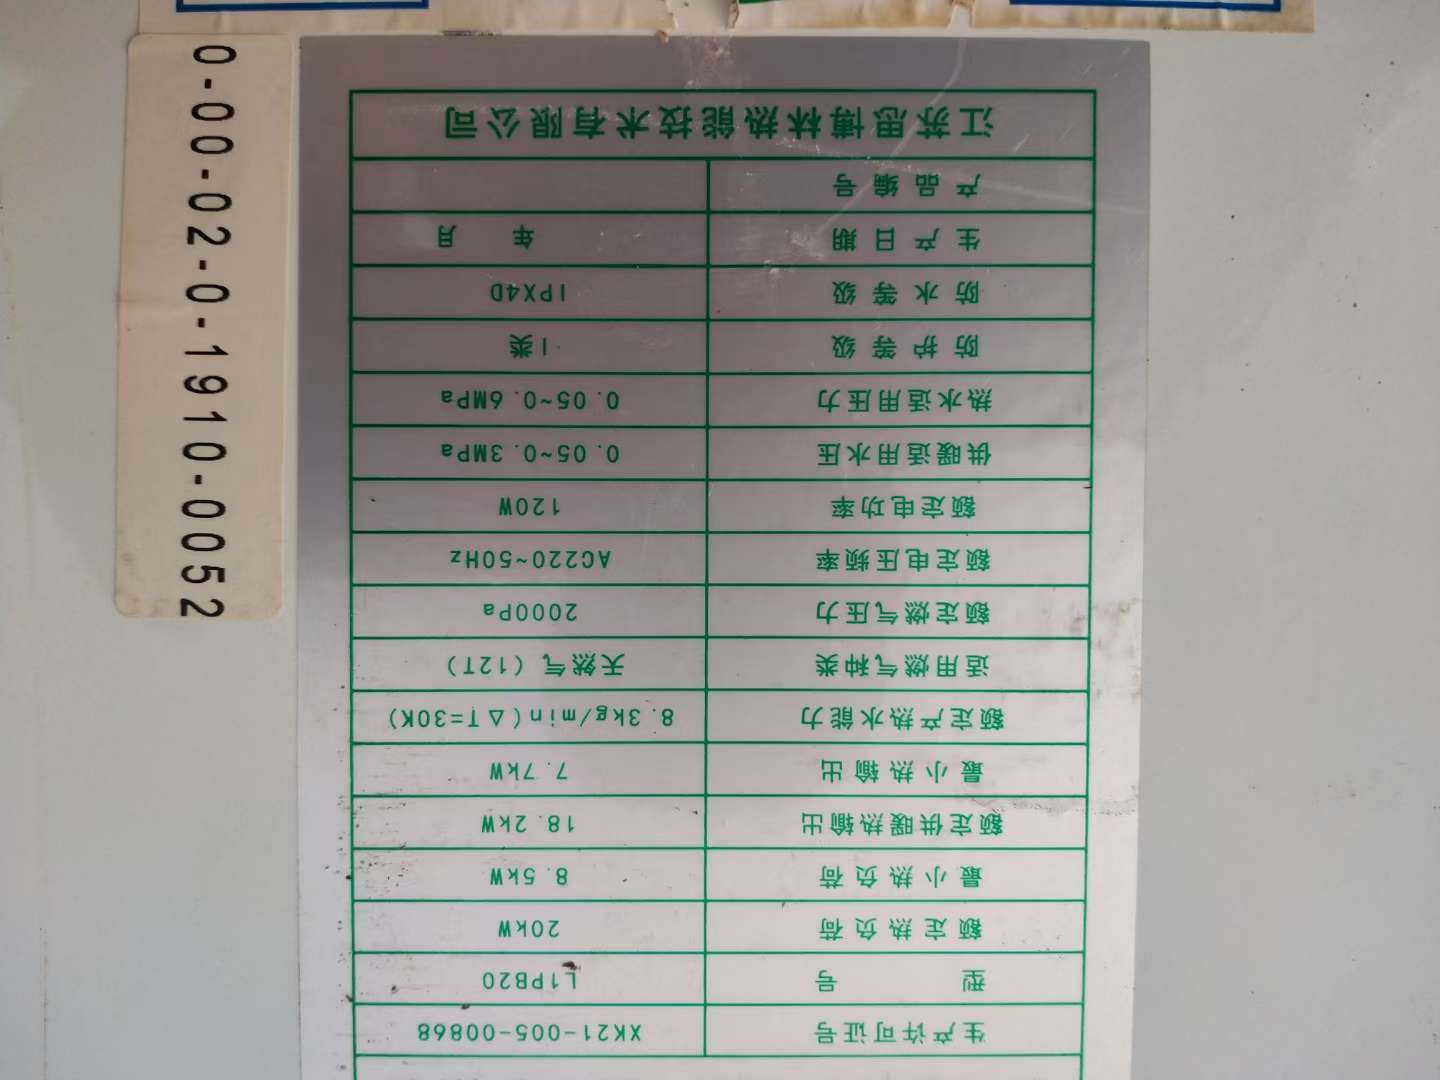 生产许可证号 XK21-005-00868
型 号 L1PB20
额定热负荷 20kW
最小热负荷 8.5kW
额定供暖热输出 18.2kW
最小热输出 7.7kW
额定产热水能力 8.3kg/min(△T=30K)
适用燃气种类 天然气(12T)
额定燃气压力 2000Pa
额定电压频率 AC220~50Hz
额定电功率 120W
供暖适用水压 0.05~0.3MPa
热水适用压力 0.05~0.6MPa
防护等级 I类
防水等级 IPX4D
生产日期 年 月
产品编号
江苏思博林热能技术有限公司
0-00-02-0-1910-0052